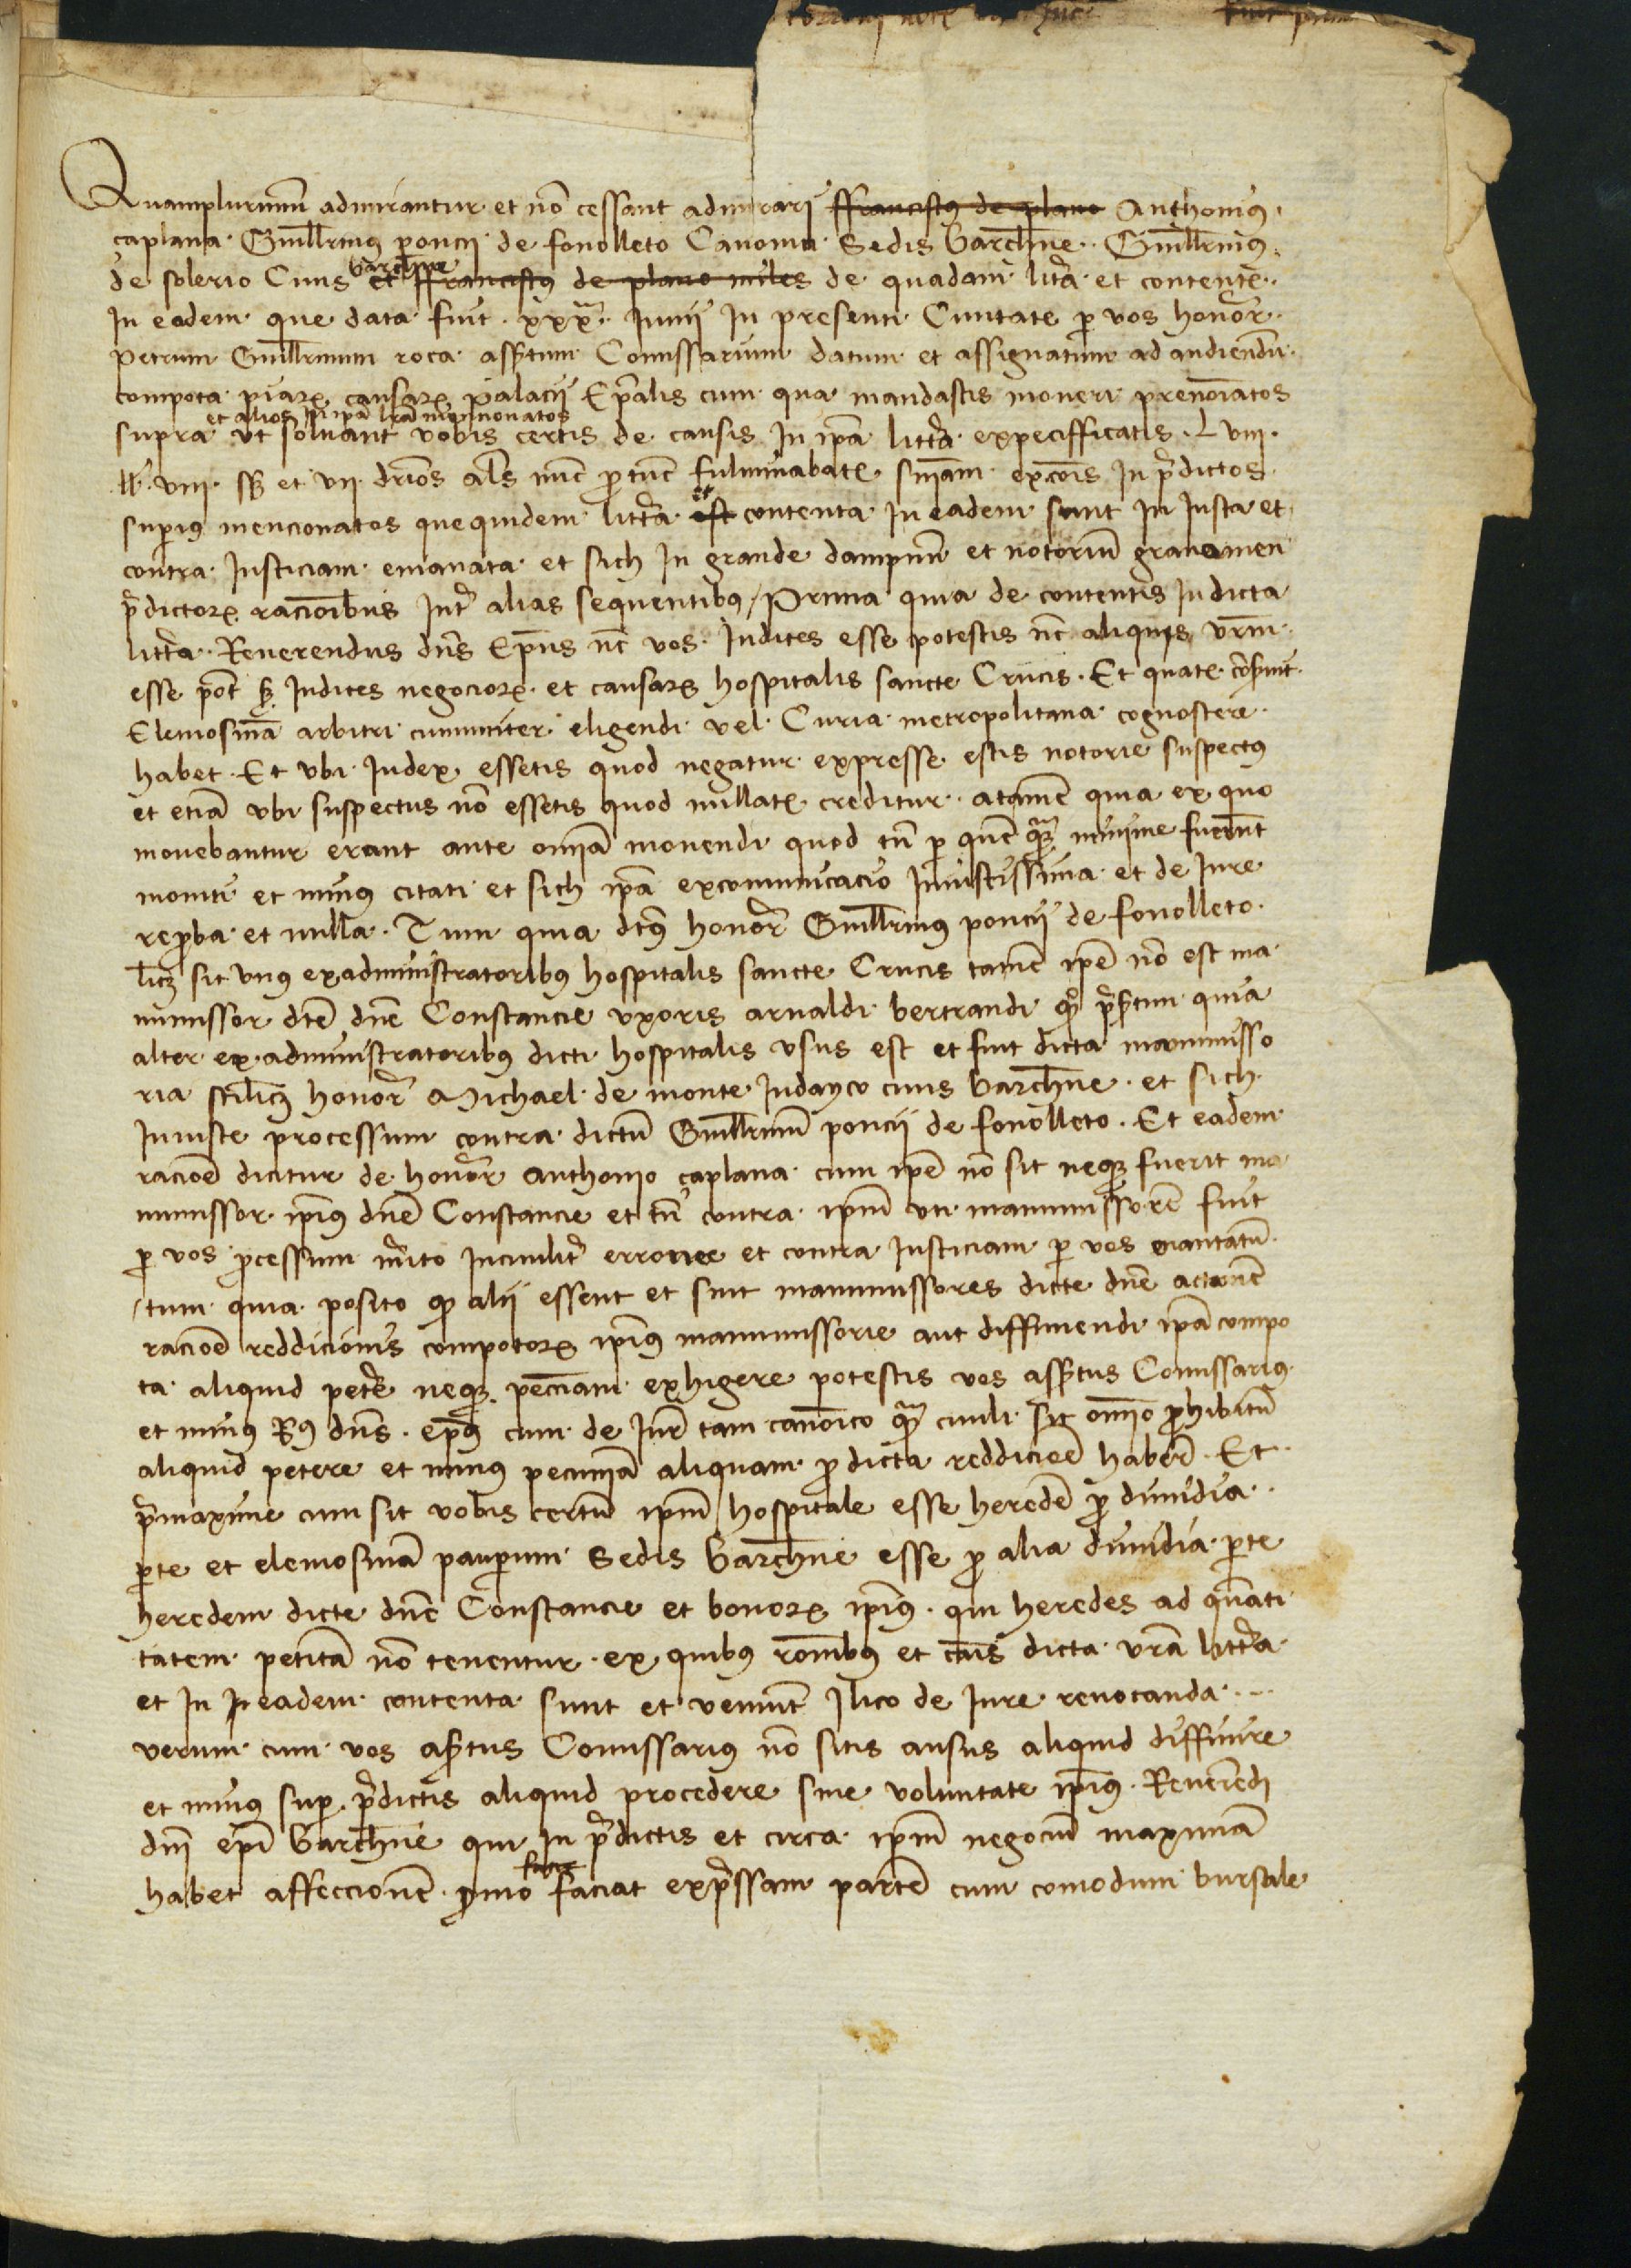 Quamplurimum admirantur et nō cessant admirari ffranciscꝰ de plano Anthoniꝰ
çaplana Guillr̄mus poncii de fonolleto Canonici Sedis barchn̄e Guillr̄mus
de solerio Ciuis barchn̄e et ffranciscꝰ de plano miles de quadam litt̄a et contentē
In eadem que data fuit xxxᵃ Iunii In presenti Ciuitate ꝑ vos honor̄
petrum Guillr̄mum roca assertum Comissarium datum et assignatum ad audiendū
compota piarꝝ causarꝝ palacii Ep̄alis cum qua mandastis moneri prenoīatos
et alios in ipā lrā mencionatos
supra vt soluant vobis certis de causis In ipā litt̄a expecifficatis Lviii
ll̄ viii ss̄ et vii drīos al̄s nūc ꝓ tūc fulminabatꝭ sniam excoīs In p̄dictos
superiꝰ mencionatos quequidem litt̄a est et contenta In eadem sunt In Iusta et
contra Iusticiam emanata et sich In grande dampnū et notoriū grauamen
p̄dictorꝝ racionibus Int̄ alias sequentibꝰ / Prima quia de contentis In dicta
litt̄a Reuerendus dn̄s Ep̄us nc̄ vos Iudices esse potestis nc̄ aliquis vrm̄
esse pōt Iudices negociorꝝ et causarꝝ hospitalis sancte Crucis Et quatꝭ
Elemosinā arbitri comuniter eligendi vel Curia metropolitana cognoscere
habet Et vbi Iudex essetis quod negatur expresse estis notorie suspectꝰ
et etiā vbi suspectus nō essetis quod nullatꝭ creditur atamē quia ex quo
monebantur erant ante omīa monendi quod tn̄ ꝑ quē minime fuerūt
moniti et minꝰ citati et sich ipā excomunicacio Iniustissima et de Iure
reꝓba et nulla Tum quia dc̄tꝰ honor̄ Guillr̄mus poncii de fonolleto
licꝫ sit vnꝰ ex administratoribꝰ hospitalis sancte Crucis tamē ipē nō est ma
numissor dc̄te dn̄e Constancie vxoris arnaldi bertrandi quia
alter ex administratoribꝰ dicti hospitalis vsus est et fuit dicta manumisso
ria scilicꝫ honor̄ Michael de monte Iudayco ciuis barchn̄e et sich
Iniuste processum contra dictū Guillr̄mū poncii de fonolleto Et eadem
racioē dicitur de honor̄ anthonio çaplana cum ipē nō sit neqꝫ fuerit ma
numissor ipīus dn̄e Constancie et tn̄ contra ipm̄ vti manumissorē fuit
ꝑ vos ꝓcessum m̄ito Inciuilit̄ erronee et contra Iusticiam ꝑ vos
/ tum quia posito qꝫ alii essent et sint manumissores dicte dn̄e
racioē reddicionis compotorꝝ ipīus manumissorie aut diffiniendi ipā compo
ta aliquid pet̄e neqꝫ pecc̄iam exhigere potestis vos assertus Comissariꝰ
et minꝰ R̄ꝰ dn̄s ep̄us cum de Iur̄ tam canoīco quā ciuili sit omīo ꝓhibitū
aliquid petere et minus pecuniā aliquam ꝓ dicta reddicioē haber̄ Et
p̄maxime cum sit vobis certū ipm̄ hospitale esse heredē ꝓ dimidia
ꝑte et elemosinā pauperum Sedis barchn̄e esse ꝓ alia dimidia ꝑte
heredem dicte dn̄e Constancie et bonorꝝ ipīus qui heredes ad quāti
tatem petitā nō tenentur ex quibꝰ roīnbꝰ et caūs dicta vrā litt̄a
et In In eadem contenta sunt et veniunt Ilico de Iure reuocanda
verum cum vos assertus Comissariꝰ nō sitis ausus aliquid diffinire
et minꝰ super p̄dictis aliquid procedere sine voluntate ipīus Reuerēdi
dn̄i ep̄i barchn̄e qui In p̄dictis et circa ipm̄ negociū maximā
habet affeccionē ymo faciat exp̄ssam partē cum comodum bursale